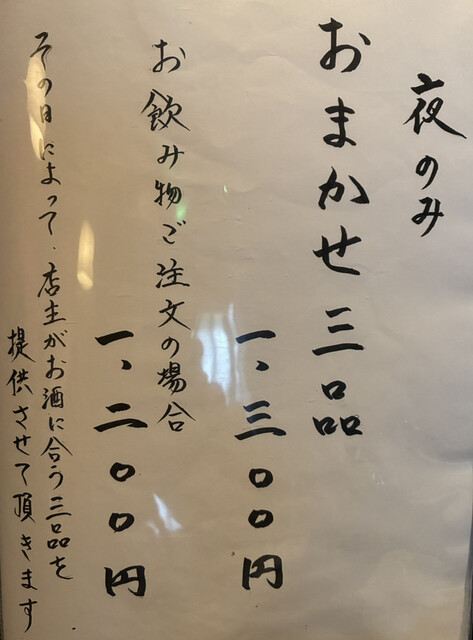 夜のみ
おまかせ三品
一、三〇〇円
お飲み物ご注文の場合
一、二〇〇円
その日によって、店主がお酒に合う三品を
提供させて頂きます